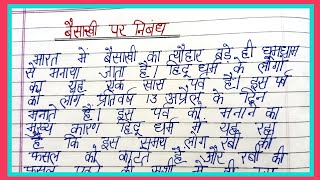 बैसाखी पर निबंध
भारत में बैसाखी का त्यौहार बड़े ही धूमधाम
से मनाया जाता है। हिंदू धर्म के लोगों
का यह एक खास पर्व है। इस पर्व
को लोग प्रतिवर्ष 13 अप्रैल के दिन
मनाते हैं। इस पर्व को मनाने का
मुख्य कारण हिंदू धर्म में यह रहा
है कि इस समय लोग रबी की
फसल को काटते हैं और रबी की